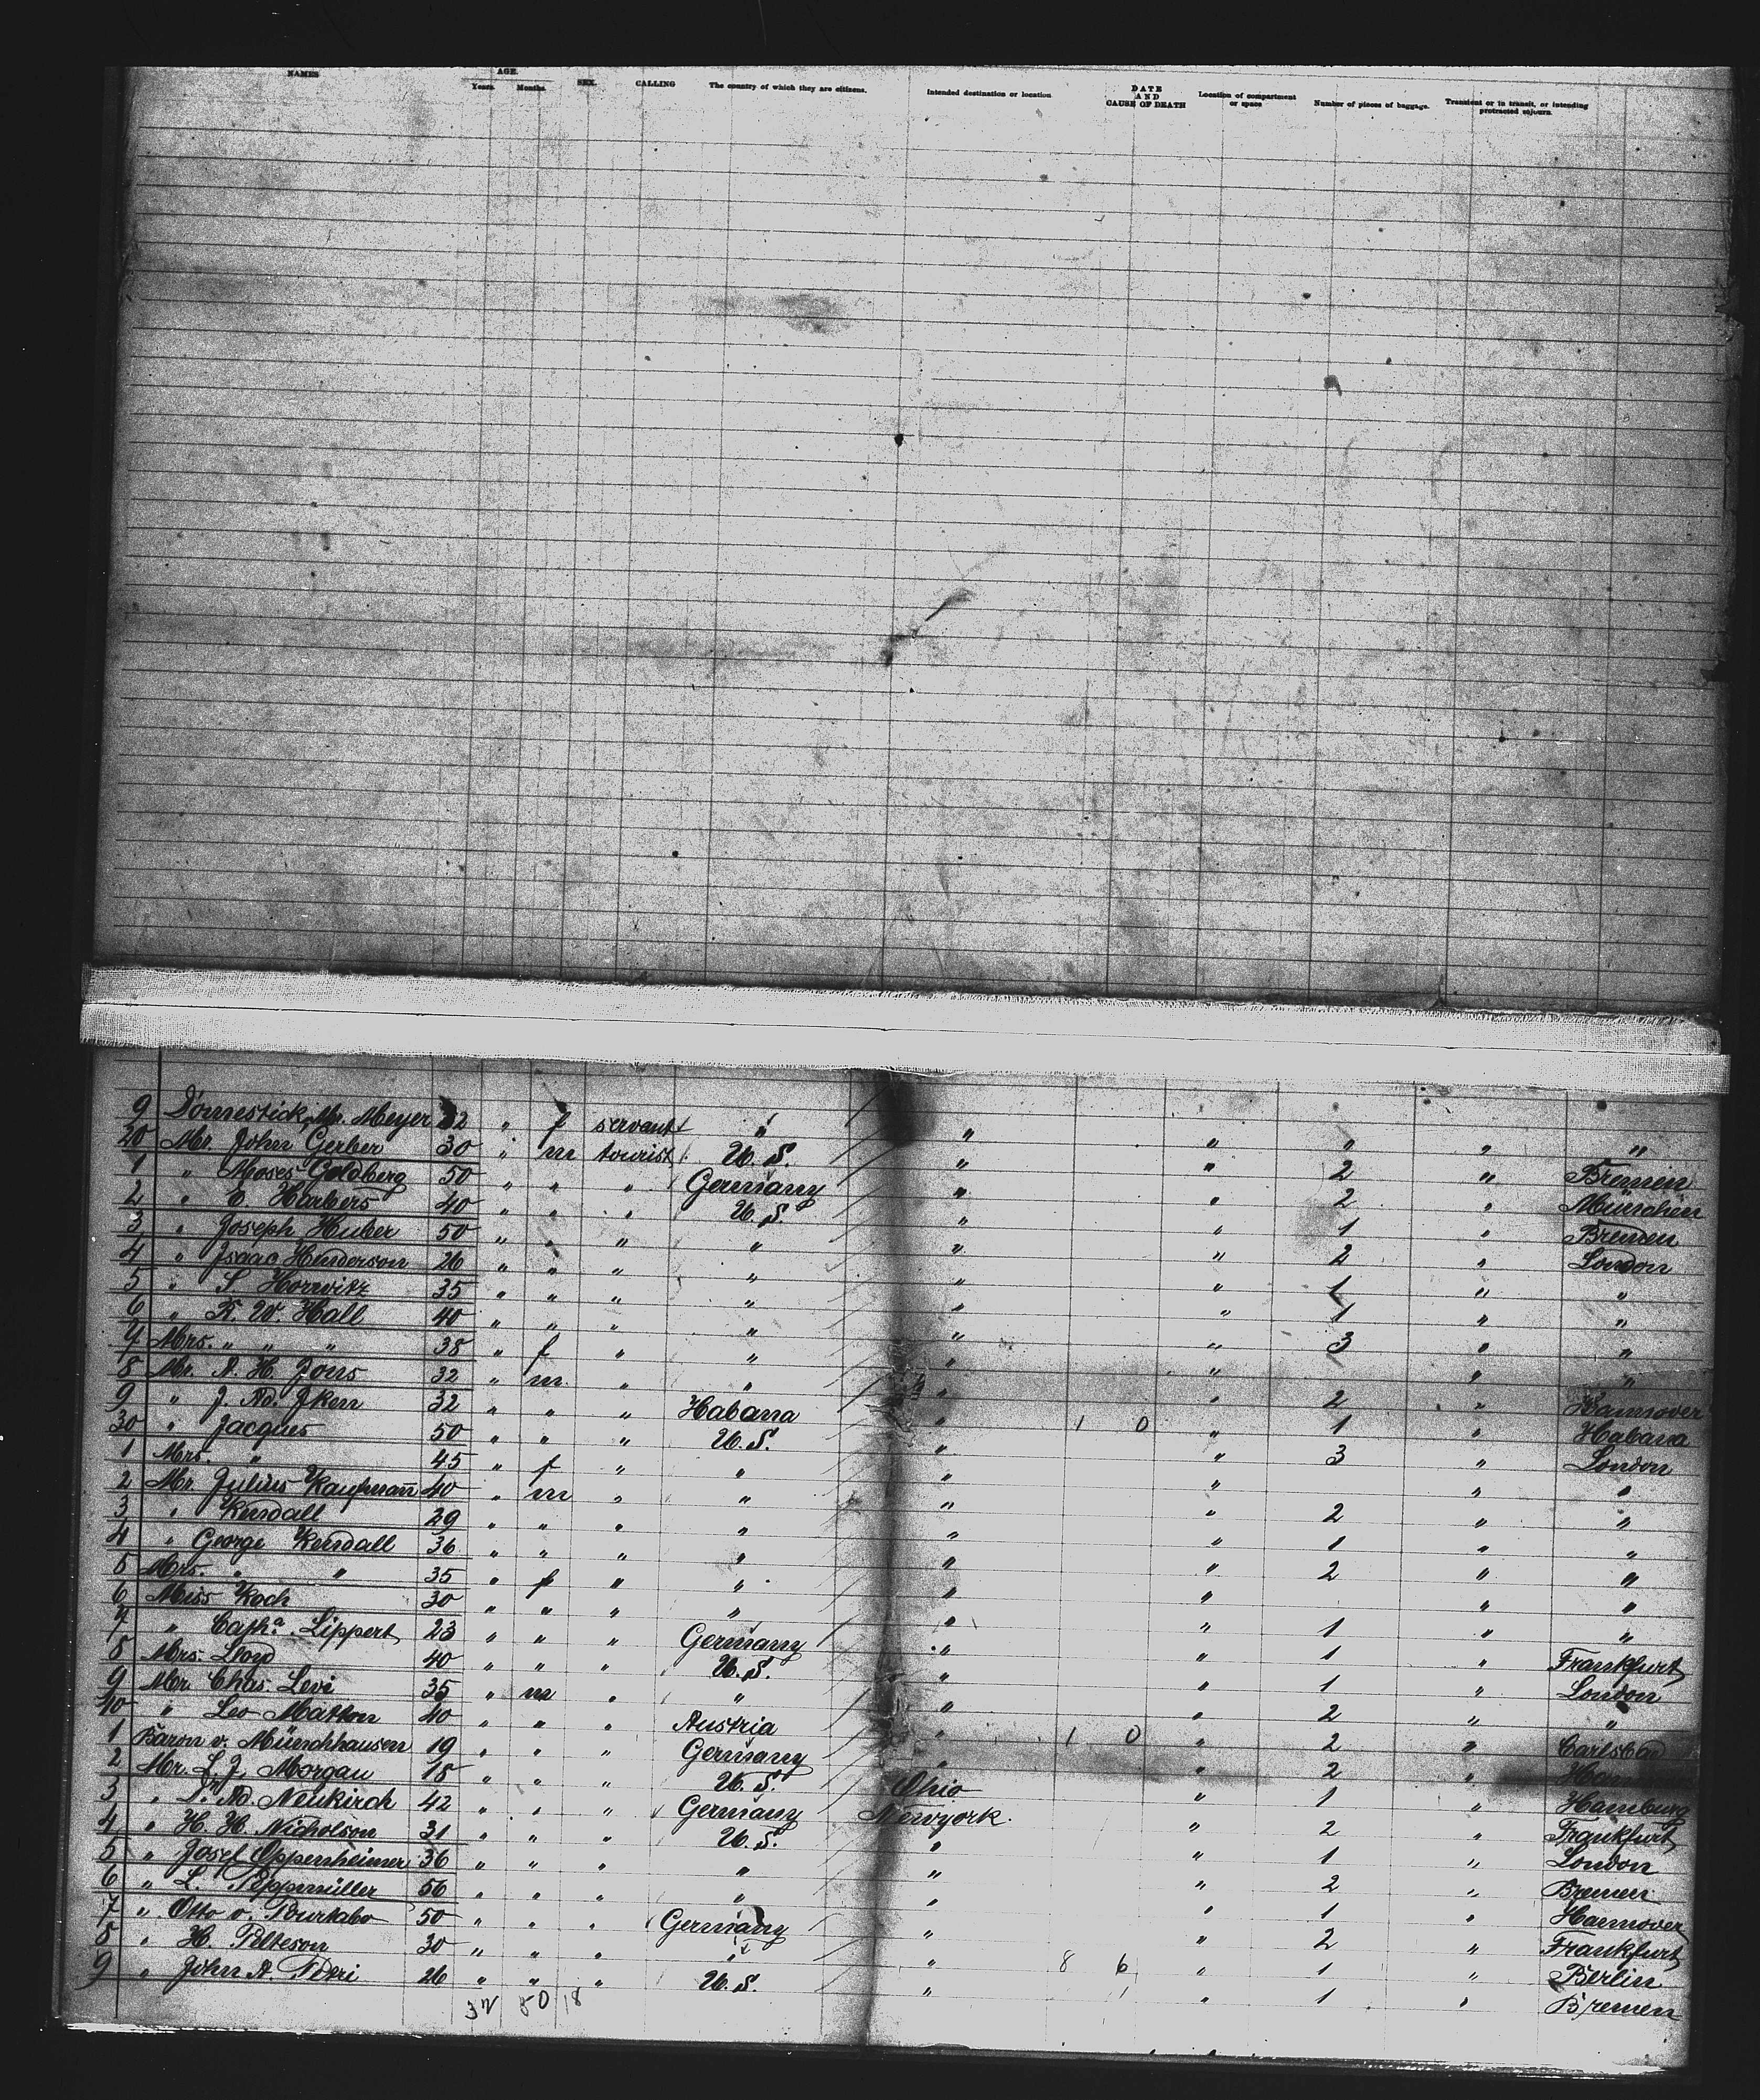 NAMES AGE. Years. Months. SEX. CALLING The country of which they are citizens. Intended destination or location DATE AND CAUSE OF DEATH Location of compartment or space Number of pieces of baggage. Transient or in transit, or intending protracted sojourn.
9 Domestick Mr. Meyer 32 " f servant " " " " " "
20 Mr. John Gerber 30 " m tourist U. S. " " 2 " Bremen
1 " Moses Goldberg 50 " " " Germany " " 2 " München
2 " C. Harbers 40 " " " U. S. " " 1 " Bremen
3 " Joseph Huber 50 " " " " " " 2 " London
4 " Isaac Henderson 26 " " " " " " 1 " "
5 " S Horwitz 35 " " " " " " 1 " "
6 " R. W. Hall 40 " " " " " " 3 " "
7 Mrs. " " " 38 " f " " " " " "
8 Mr. A. H. Jons 32 " m. " " " " 2 " Hannover
9 " J. Ad. Jken 32 " " " Habana " 1 0 " 1 " Habana
30 " Jacques 50 " " " U. S. " " 3 " London
1 Mrs. " 45 " f " " " " " "
2 Mr Julius Kaufmann 40 " m " " " " 2 " "
3 " Kendall 29 " " " " " " 1 " "
4 " George Kendall 36 " " " " " " 2 " "
5 Mrs. " " 35 " f " " " " " "
6 Miss Koch 30 " " " " " " 1 " "
7 " Catha. Lippert 23 " " " Germany " " 1 " Frankfurt
8 Mrs. Lloyd 40 " " " U. S. " " 1 " London
9 Mr. Chas. Levi 35 " m " " " " 2 " "
40 " Leo Matton 40 " " " Austria " 1 0 " 2 " Carlsbad
1 Baron v. Münchhausen 19 " " " Germany " " 2 "
2 Mr. L. J. Morgan 18 " " " U. S. Ohio " 1 " Hamburg
3 " Dr. Ad. Neukirch 42 " " " Germany Newyork. " 2 " Frankfurt
4 " H. H. Nicholson 31 " " " U. S. " " 1 " London
5 " Josef Oppenheimer 36 " " " " " " 2 " Bremen
6 " L. Peppmüller 56 " " " " " " 1 " Hannover
7 " Otto v. 50 " " " Germany " " 2 " Frankfurt
8 " H. Pelteson 30 " " " " " 8 6 " 1 " Berlin
9 " John A. Petri 26 " " " U. S. " " 1 " Bremen
32 50 18